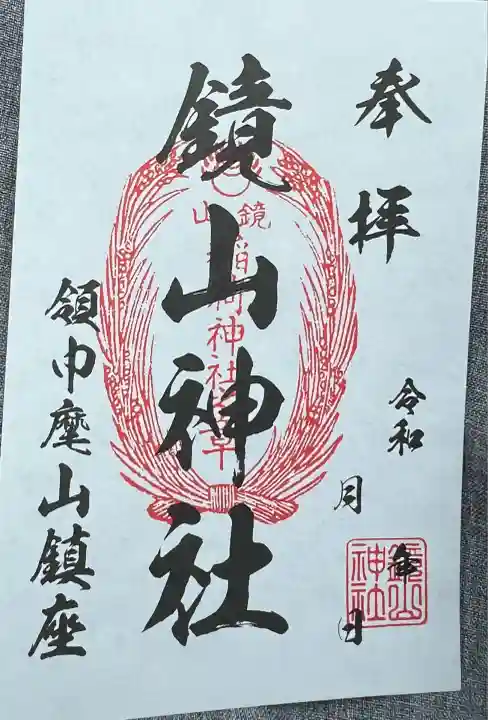 奉拝
令和
年
月
日
鏡山神社
鏡山
稲荷神社
鏡山神社
領巾麾山鎮座